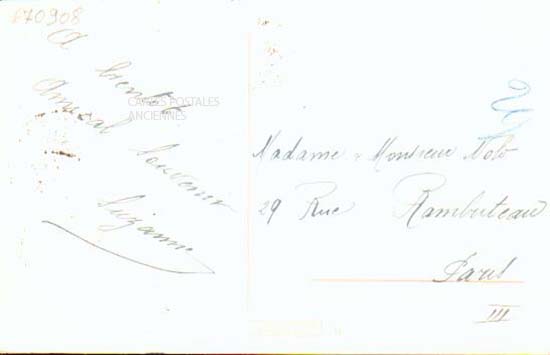 670908
A bientôt
Amical Souvenir
Suzanne
CARTES POSTALES
ANCIENNES
Madame & Monsieur Nolo
29 Rue Rambuteau
Paris
III